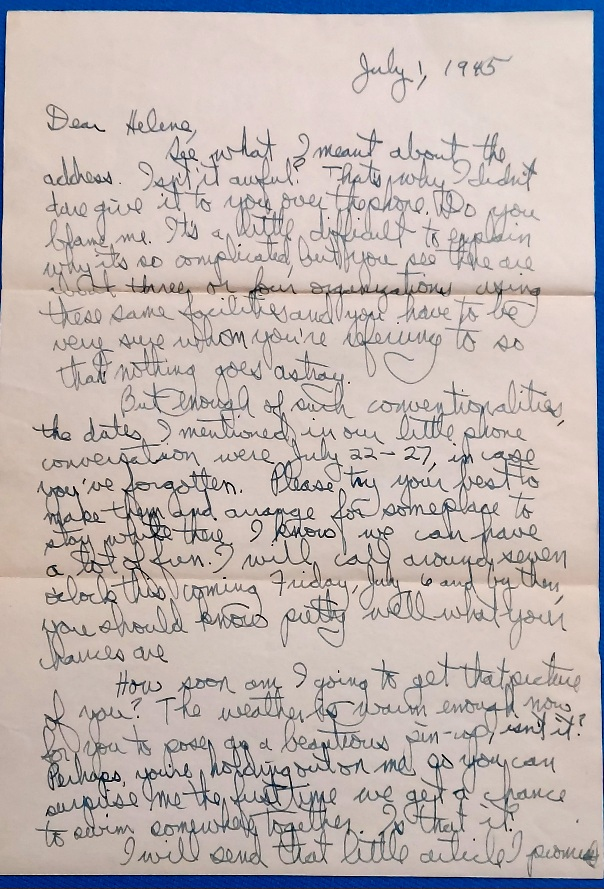 July 1, 1945
Dear Helene,
See what I meant about the
address. Isn't it awful? That's why I didn't
dare give it to you over the phone. Do you
blame me. It's a little difficult to explain
why it's so complicated, but you see there are
about three or four organizations using
these same facilities and you have to be
very sure whom you're referring to so
that nothing goes astray.
But enough of such conventionalities,
the dates I mentioned in our little phone
conversation were July 22-27, in case
you've forgotten. Please try your best to
make them and arrange for someplace to
stay while there. I know we can have
a lot of fun. I will call around seven
oclock this coming Friday, July 6 and by then,
you should know pretty well what your
chances are
How soon am I going to get that picture
of you? The weather is warm enough now
for you to pose as a beauteous pin-up, isn't it?
Perhaps, you're holding out on me so you can
surprise me the first time we get a chance
to swim somewhere together. Is that it?
I will send that little article I promised